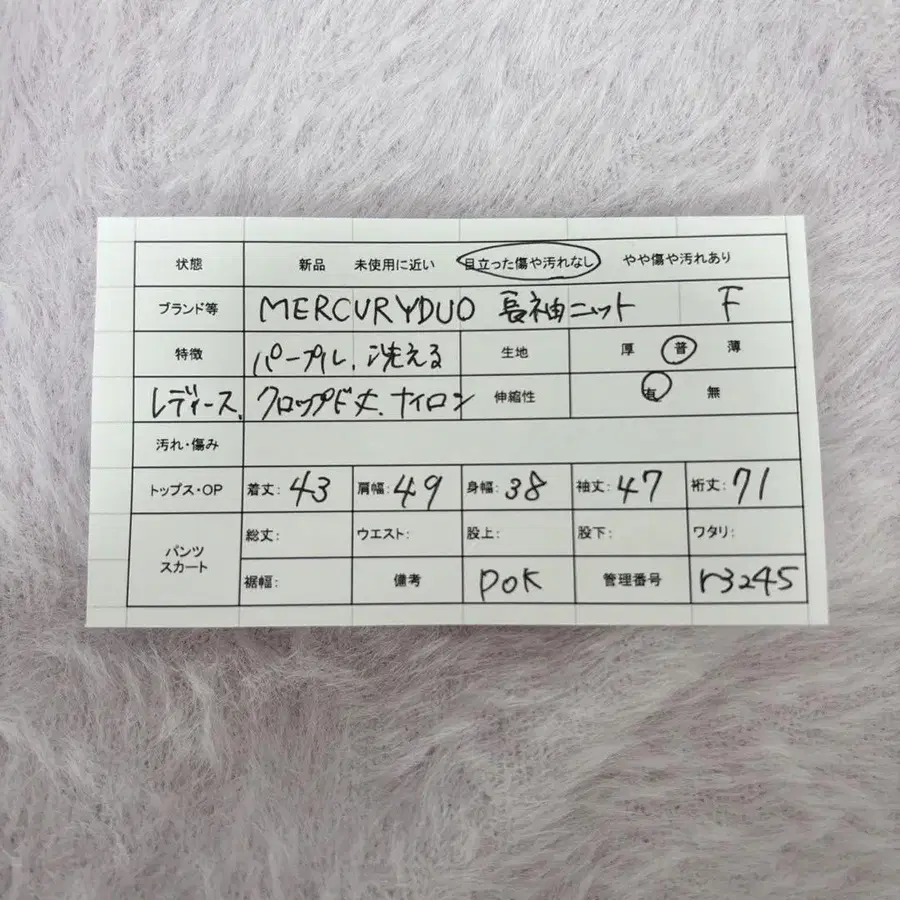 状態 新品 未使用に近い 目立った傷や汚れなし やや傷や汚れあり
ブランド等 MERCURYDUO 長袖ニット F
特徴 パープル、洗える 生地 厚 普 薄
レディース、クロップド丈、ナイロン 伸縮性 有 無
汚れ・傷み
トップス・OP 着丈: 43 肩幅: 49 身幅: 38 袖丈: 47 裄丈: 71
パンツ 総丈: ウエスト: 股上: 股下: ワタリ:
スカート 裾幅: 備考 POK 管理番号 r3245